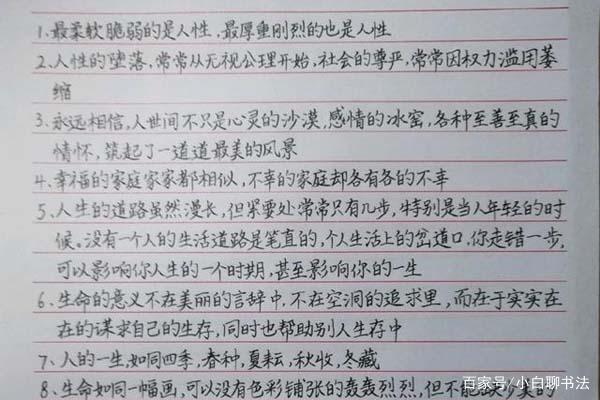 1.最柔软脆弱的是人性,最厚重刚烈的也是人性
2.人性的堕落,常常从无视公理开始,社会的尊严,常常因权力滥用萎
缩
3.永远相信,人世间不只是心灵的沙漠,感情的冰窑,各种至善至真的
情怀,筑起了一道道最美的风景
4.幸福的家庭家家都相似,不幸的家庭却各有各的不幸
5、人生的道路虽然漫长,但紧要处常常只有几步,特别是当人年轻的时
候。没有一个人的生活道路是笔直的,个人生活上的岔道口,你走错一步,
可以影响你人生的一个时期,甚至影响你的一生
6、生命的意义不在美丽的言辞中,不在空洞的追求里,而在于实实在
在的谋求自己的生存,同时也帮助别人生存中
7、人的一生,如同四季,春种,夏耘,秋收,冬藏
8、生命如同一幅画,可以没有色彩铺张的轰轰烈烈,但不能缺少美的
百家号/小白聊书法